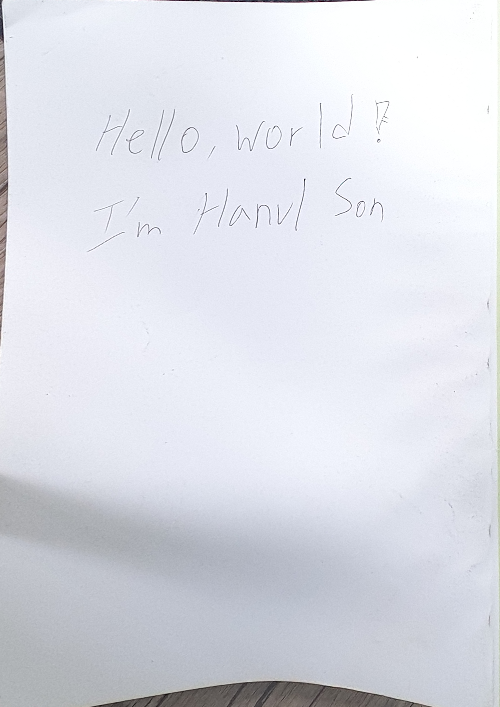 Hello, world!
I'm Hanul Son